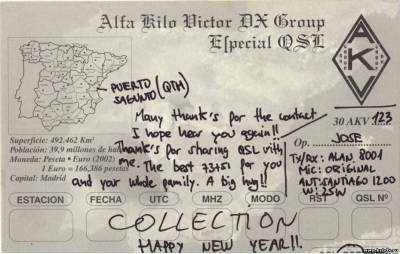 Alfa Kilo Victor DX Group
Especial QSL
AKV
PUERTO (QTH)
SAGUNTO
Many thank's for the contact
I hope hear you again!!
Thank's for sharing QSL with
me. The best 73+51 for you
and your whole family. A big hug!!
30 AKV 123
Op. JOSE
TX/RX: ALAN 8001
MIC: ORIGINAL
ANT: SANTIAGO 1200
W: 25W
Superficie: 492.462 Km²
Población: 39,9 millones de
Moneda: Peseta • Euro (2002)
1 Euro = 166,386 pesetas
Capital: Madrid
ESTACION FECHA UTC MHZ MODO RST QSL Nº
COLLECTION
HAPPY NEW YEAR!!.